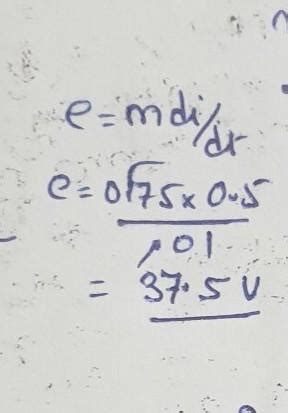 e = m di/dt
e = 0.75 x 0.5
.01
= 37.5 V